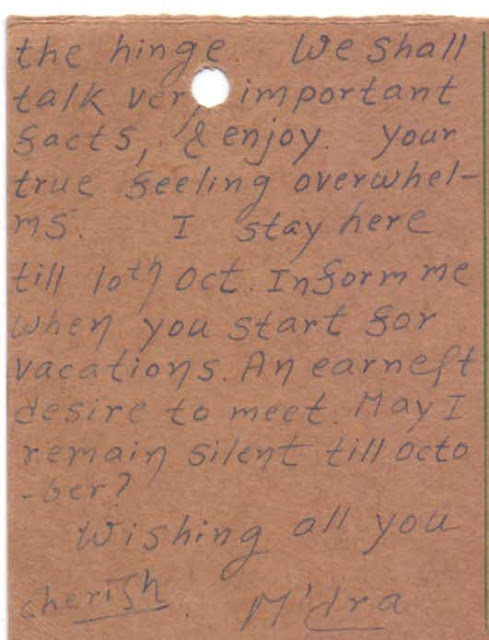 the hinge. We shall
talk very important
facts, & enjoy. your
true feeling overwhel-
ms. I stay here
till 10th Oct. Inform me
when you start for
vacations. An earnest
desire to meet. May I
remain silent till octo
-ber?
Wishing all you
cherish. M'dra